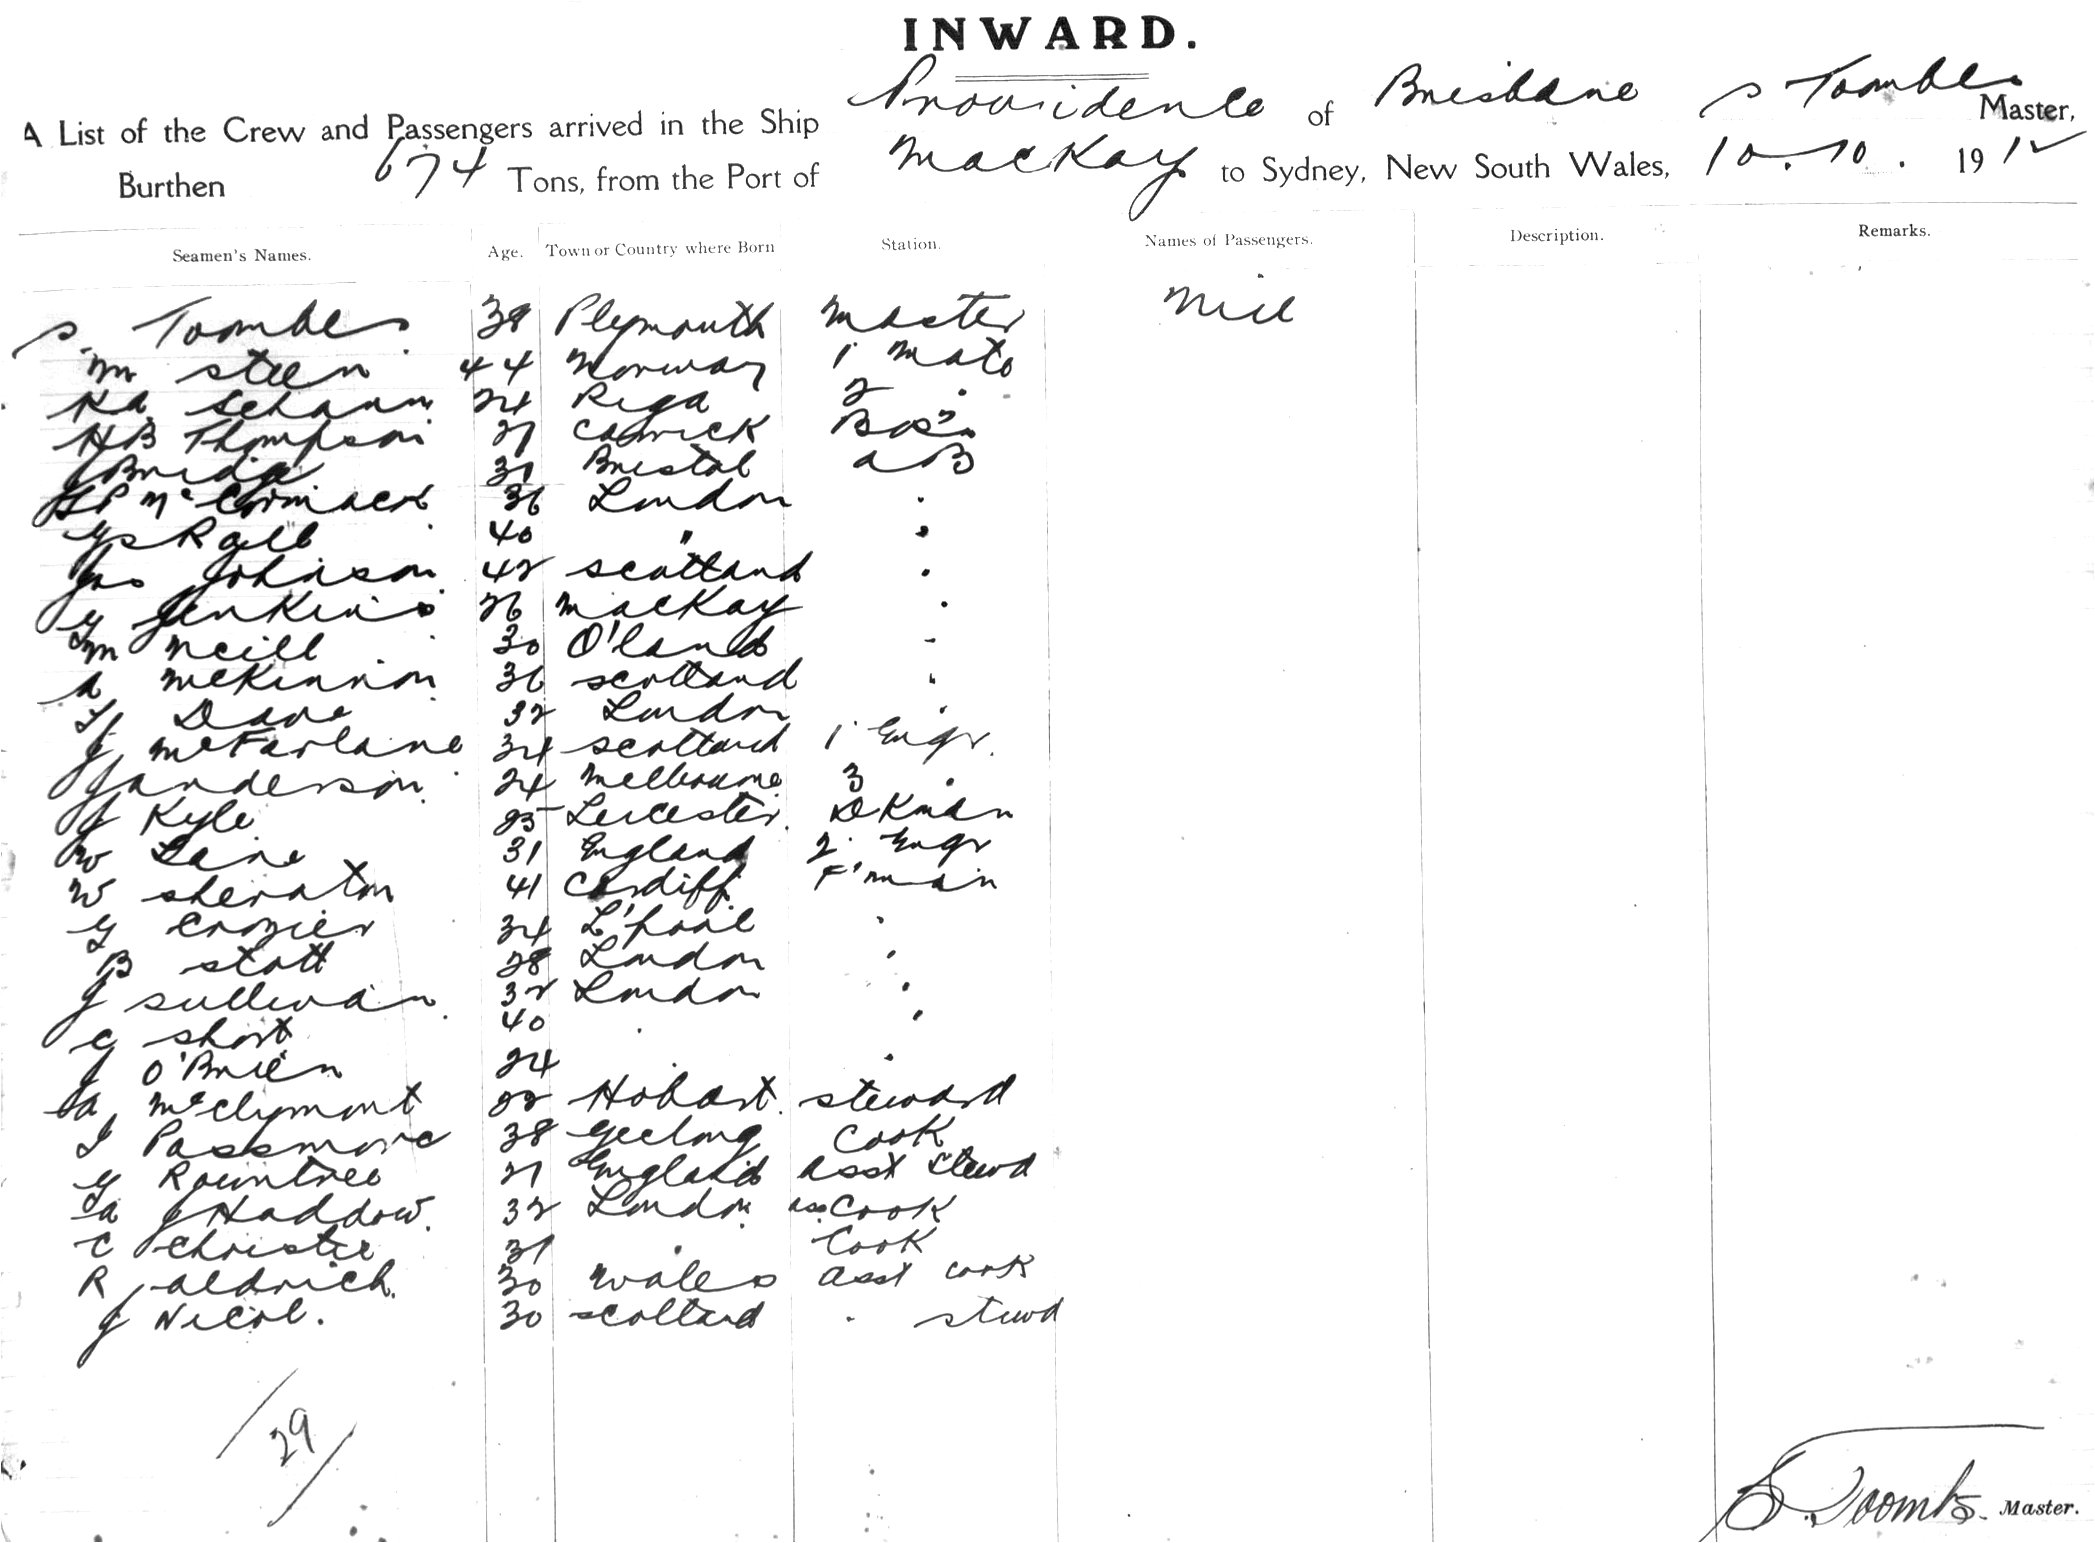 INWARD.
A List of the Crew and Passengers arrived in the Ship Providence of Brisbane S Toombes Master,
Burthen 674 Tons, from the Port of MacKay to Sydney, New South Wales, 10.10.1912
Seamen's Names. Age. Town or Country where Born Station. Names of Passengers. Description. Remarks.
S. Toombes 38 Plymouth Master Nil
M Steen 44 Norway 1 Mate
KA Schaun 24 Riga 2 "
HB Thompson 27 Bos'n
J Bridge 37 Bristol AB
McCormack 36 London "
Rall 40 " "
Jas Johnson 42 Scotland "
G Jenkins 26 MacKay "
M Neill 30 Q'land "
A McKinnon 36 Scotland "
32 London "
J McFarlane 34 Scotland 1 Engr.
J Anderson 24 Melbourne 3 "
J Kyle 25 Leicester. DKman
W Lane 31 England 2. Engr
W Sheraton 41 Cardiff F'man
G Crozier 34 L'pool "
B Stott 28 London "
J Sullivan 32 London "
C Short 40 " "
J O'Brien 24 " "
A McClymont 22 Hobart. Steward
I Passmore 38 Geelong Cook
G Rowntree 27 England Asst Stewd
A J Haddow. 32 London Ass Cook
C Christie 37 " Cook
R Aldrich. 30 Wales Asst Cook
J Nicol. 30 Scotland " Stewd
/29/
S. Toombs. Master.